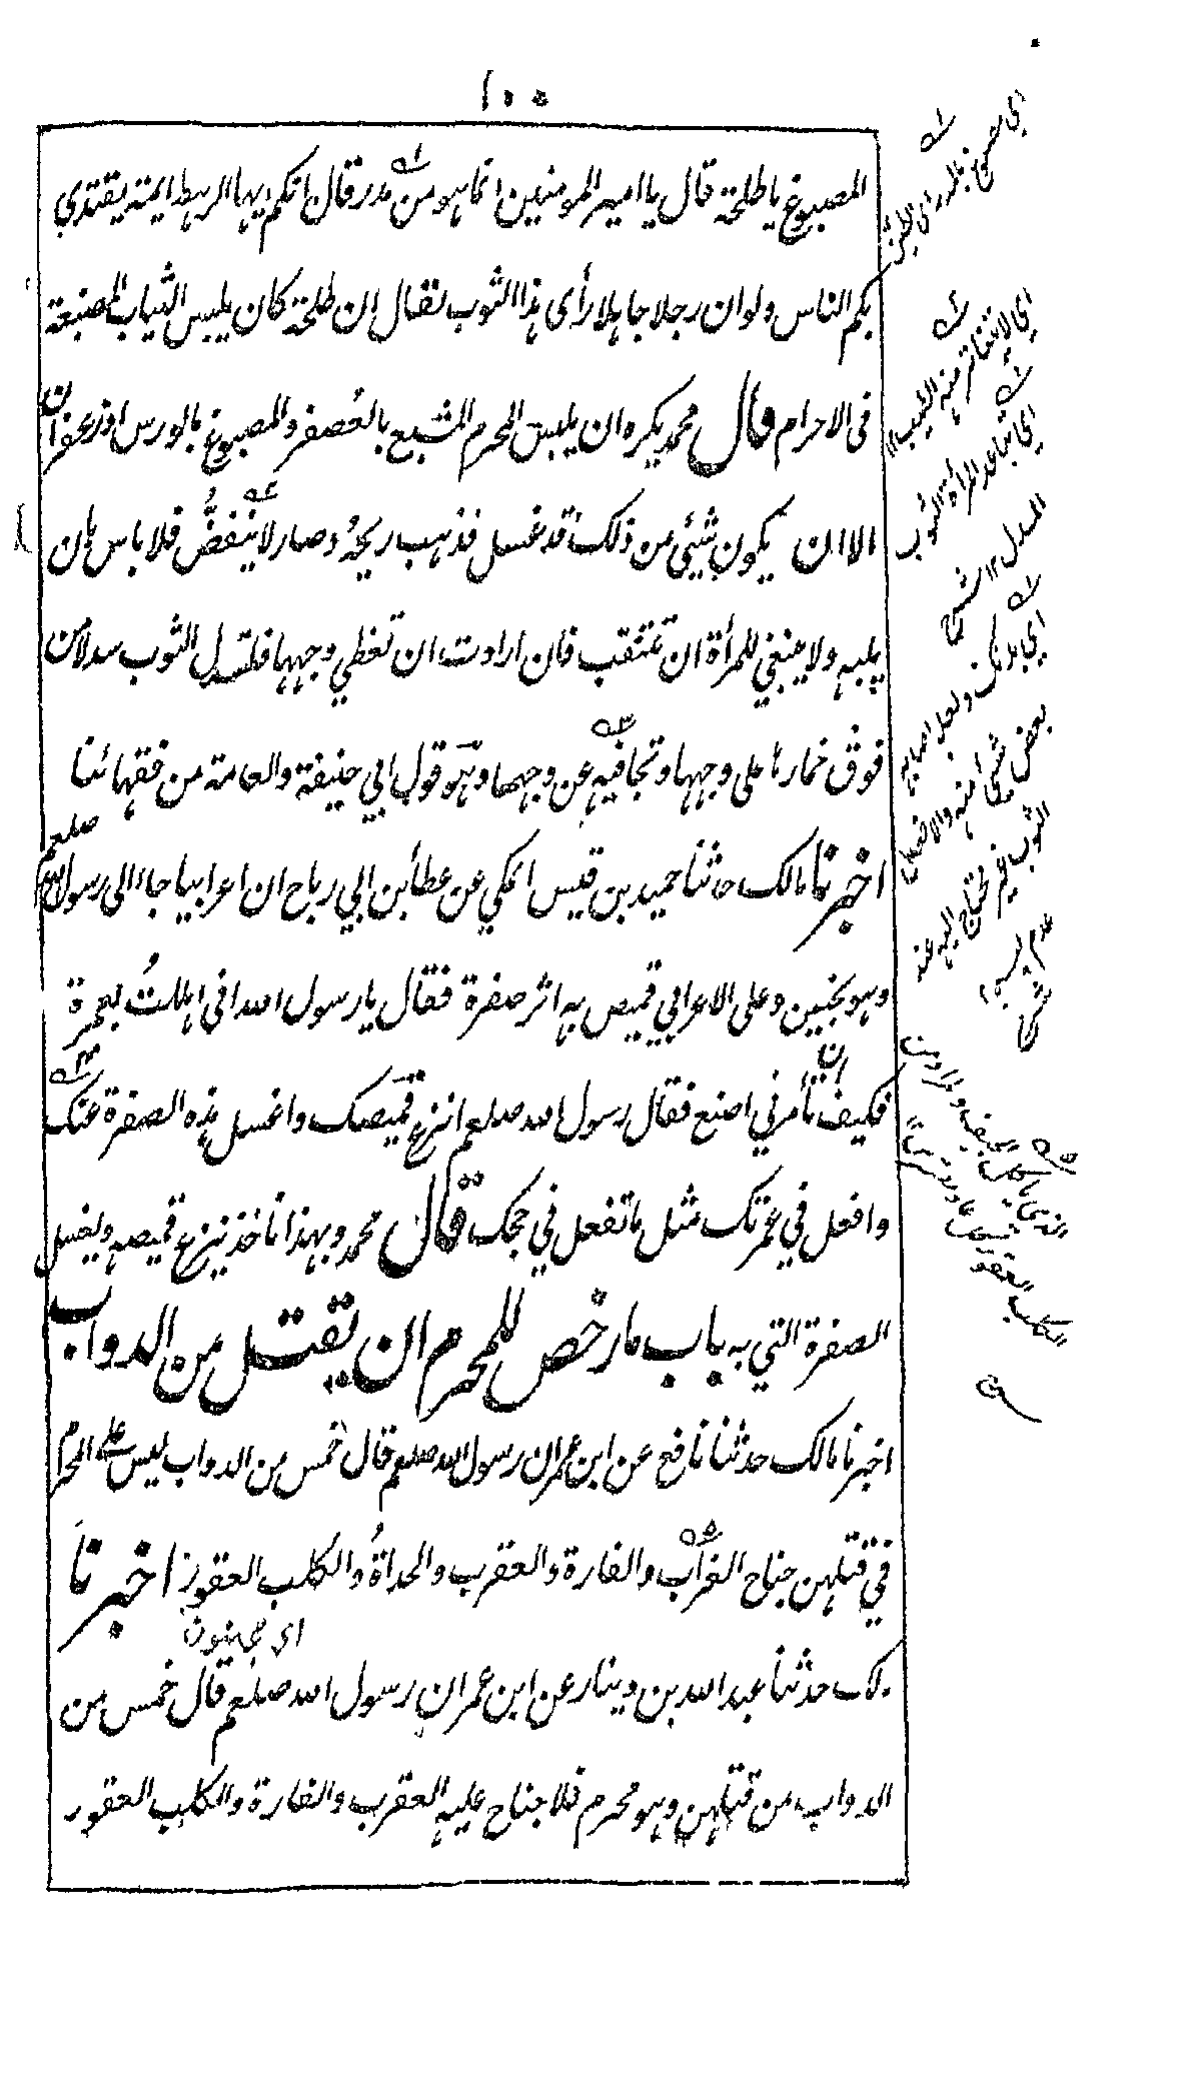 ١٠٠
المصبوغ يا طلحة قال يا امير المومنين انما هو من مدر قال انكم ايها الرهط ايمة يقتدي
بكم الناس ولو ان رجلا جاهلا رأى هذا الثوب لقال ان طلحة كان يلبس الثياب المصبغة
فى الاحرام قال محمد يكره ان يلبس المحرم المشبع بالعُصفر والمصبوغ بالورس او زعفران
الا ان يكون شئي من ذلك قد غسل فذهب ريحهُ وصار لا ينفضُّ فلا باس بان
يلبسه ولا ينبغي للمرأة ان تتنقب فان ارادت ان تغطي وجهها فلتسدل الثوب سدلا من
فوق خمارها على وجهها وتجافيه عن وجهها وهو قول ابي حنيفة والعامة من فقهائنا
اخبرنا مالك حدثنا حميد بن قيس المكي عن عطأ بن ابي رباح ان اعرابيا جاء الى رسول الله صلعم
وهو بحنين وعلى الاعرابي قميص به اثر صفرة فقال يا رسول الله اني اهللتُ بعمرة
فكيف تأمرني ان اصنع فقال رسول الله صلعم انزع قميصك واغسل هذه الصفرة عنك
وافعل في عمرتك مثل ما تفعل في حجك قال محمد وبهذا ناخذ ينزع قميصه ويغسل
الصفرة التي به باب ما رخص للمحرم ان يقتل من الدواب
اخبرنا مالك حدثنا نافع عن ابن عمر ان رسول الله صلعم قال خمس من الدواب ليس على المحرم
في قتلهن جناح الغراب والفارة والعقرب والحداةُ والكلب العقور اخبرنا
اى مجنون
مالك حدثنا عبد الله بن دينار عن ابن عمر ان رسول الله صلعم قال خمس من
الدواب من قتلهن وهو محرم فلا جناح عليه العقرب والفارة والكلب العقور
اي لا يتناثر منه الطيب ١٢
اي تباعد المرأة الثوب
المسدل ١٢ شرح